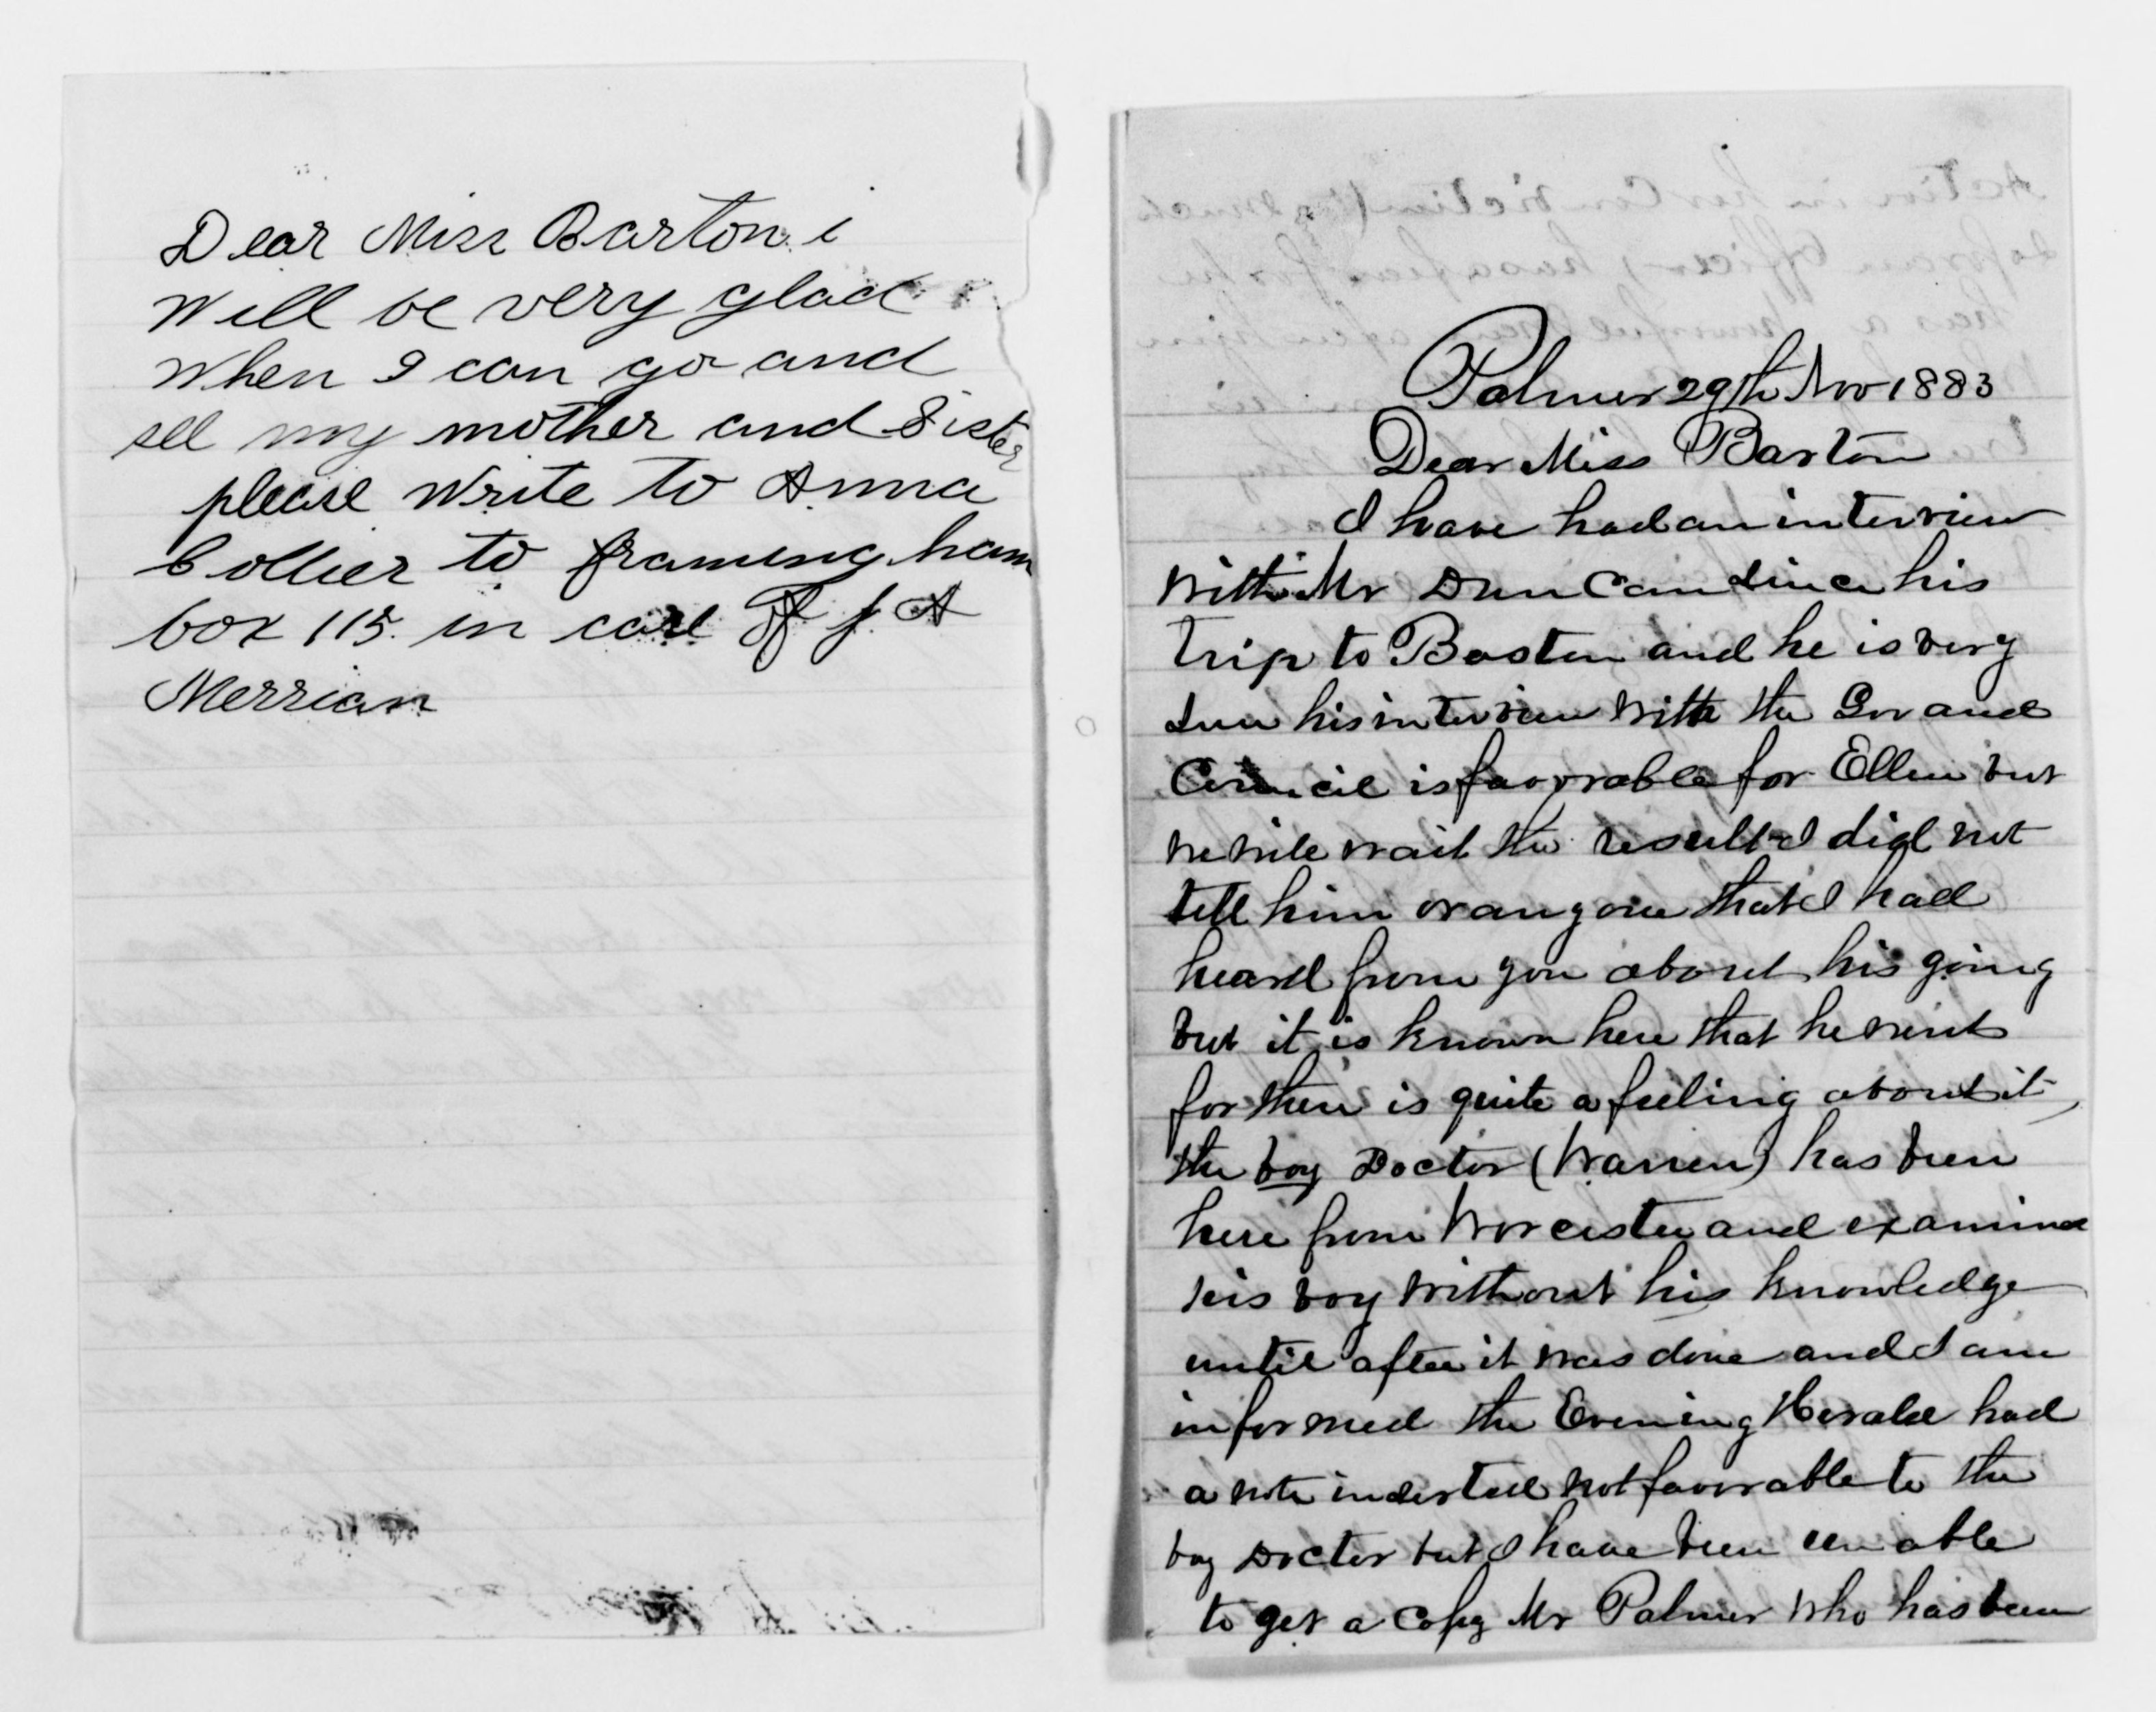 Dear Miss Barton i
Will be very glad
When I can go and
see my mother and Sister
please Write to Anna
Collier to framingham
box 115. in care of J. A
Merriam
Palmer 29th Nov 1883
Dear Miss Barton
I have had an interview
with Mr Duncan since his
trip to Boston and he is very
sure his interview with the Gov and
Council is favorable for Ellen but
we wile wait the result I did not
tell him or any one that I had
heard from you about his going
but it is known here that he went
for there is quite a feeling about it
the boy Doctor (Warren) has been
here from Worcester and examined
his boy without his knowledge
until after it was done and I am
informed the Evening Herald had
a note inserted not favorable to the
boy Doctor but I have been unable
to get a copy Mr Palmer who has been